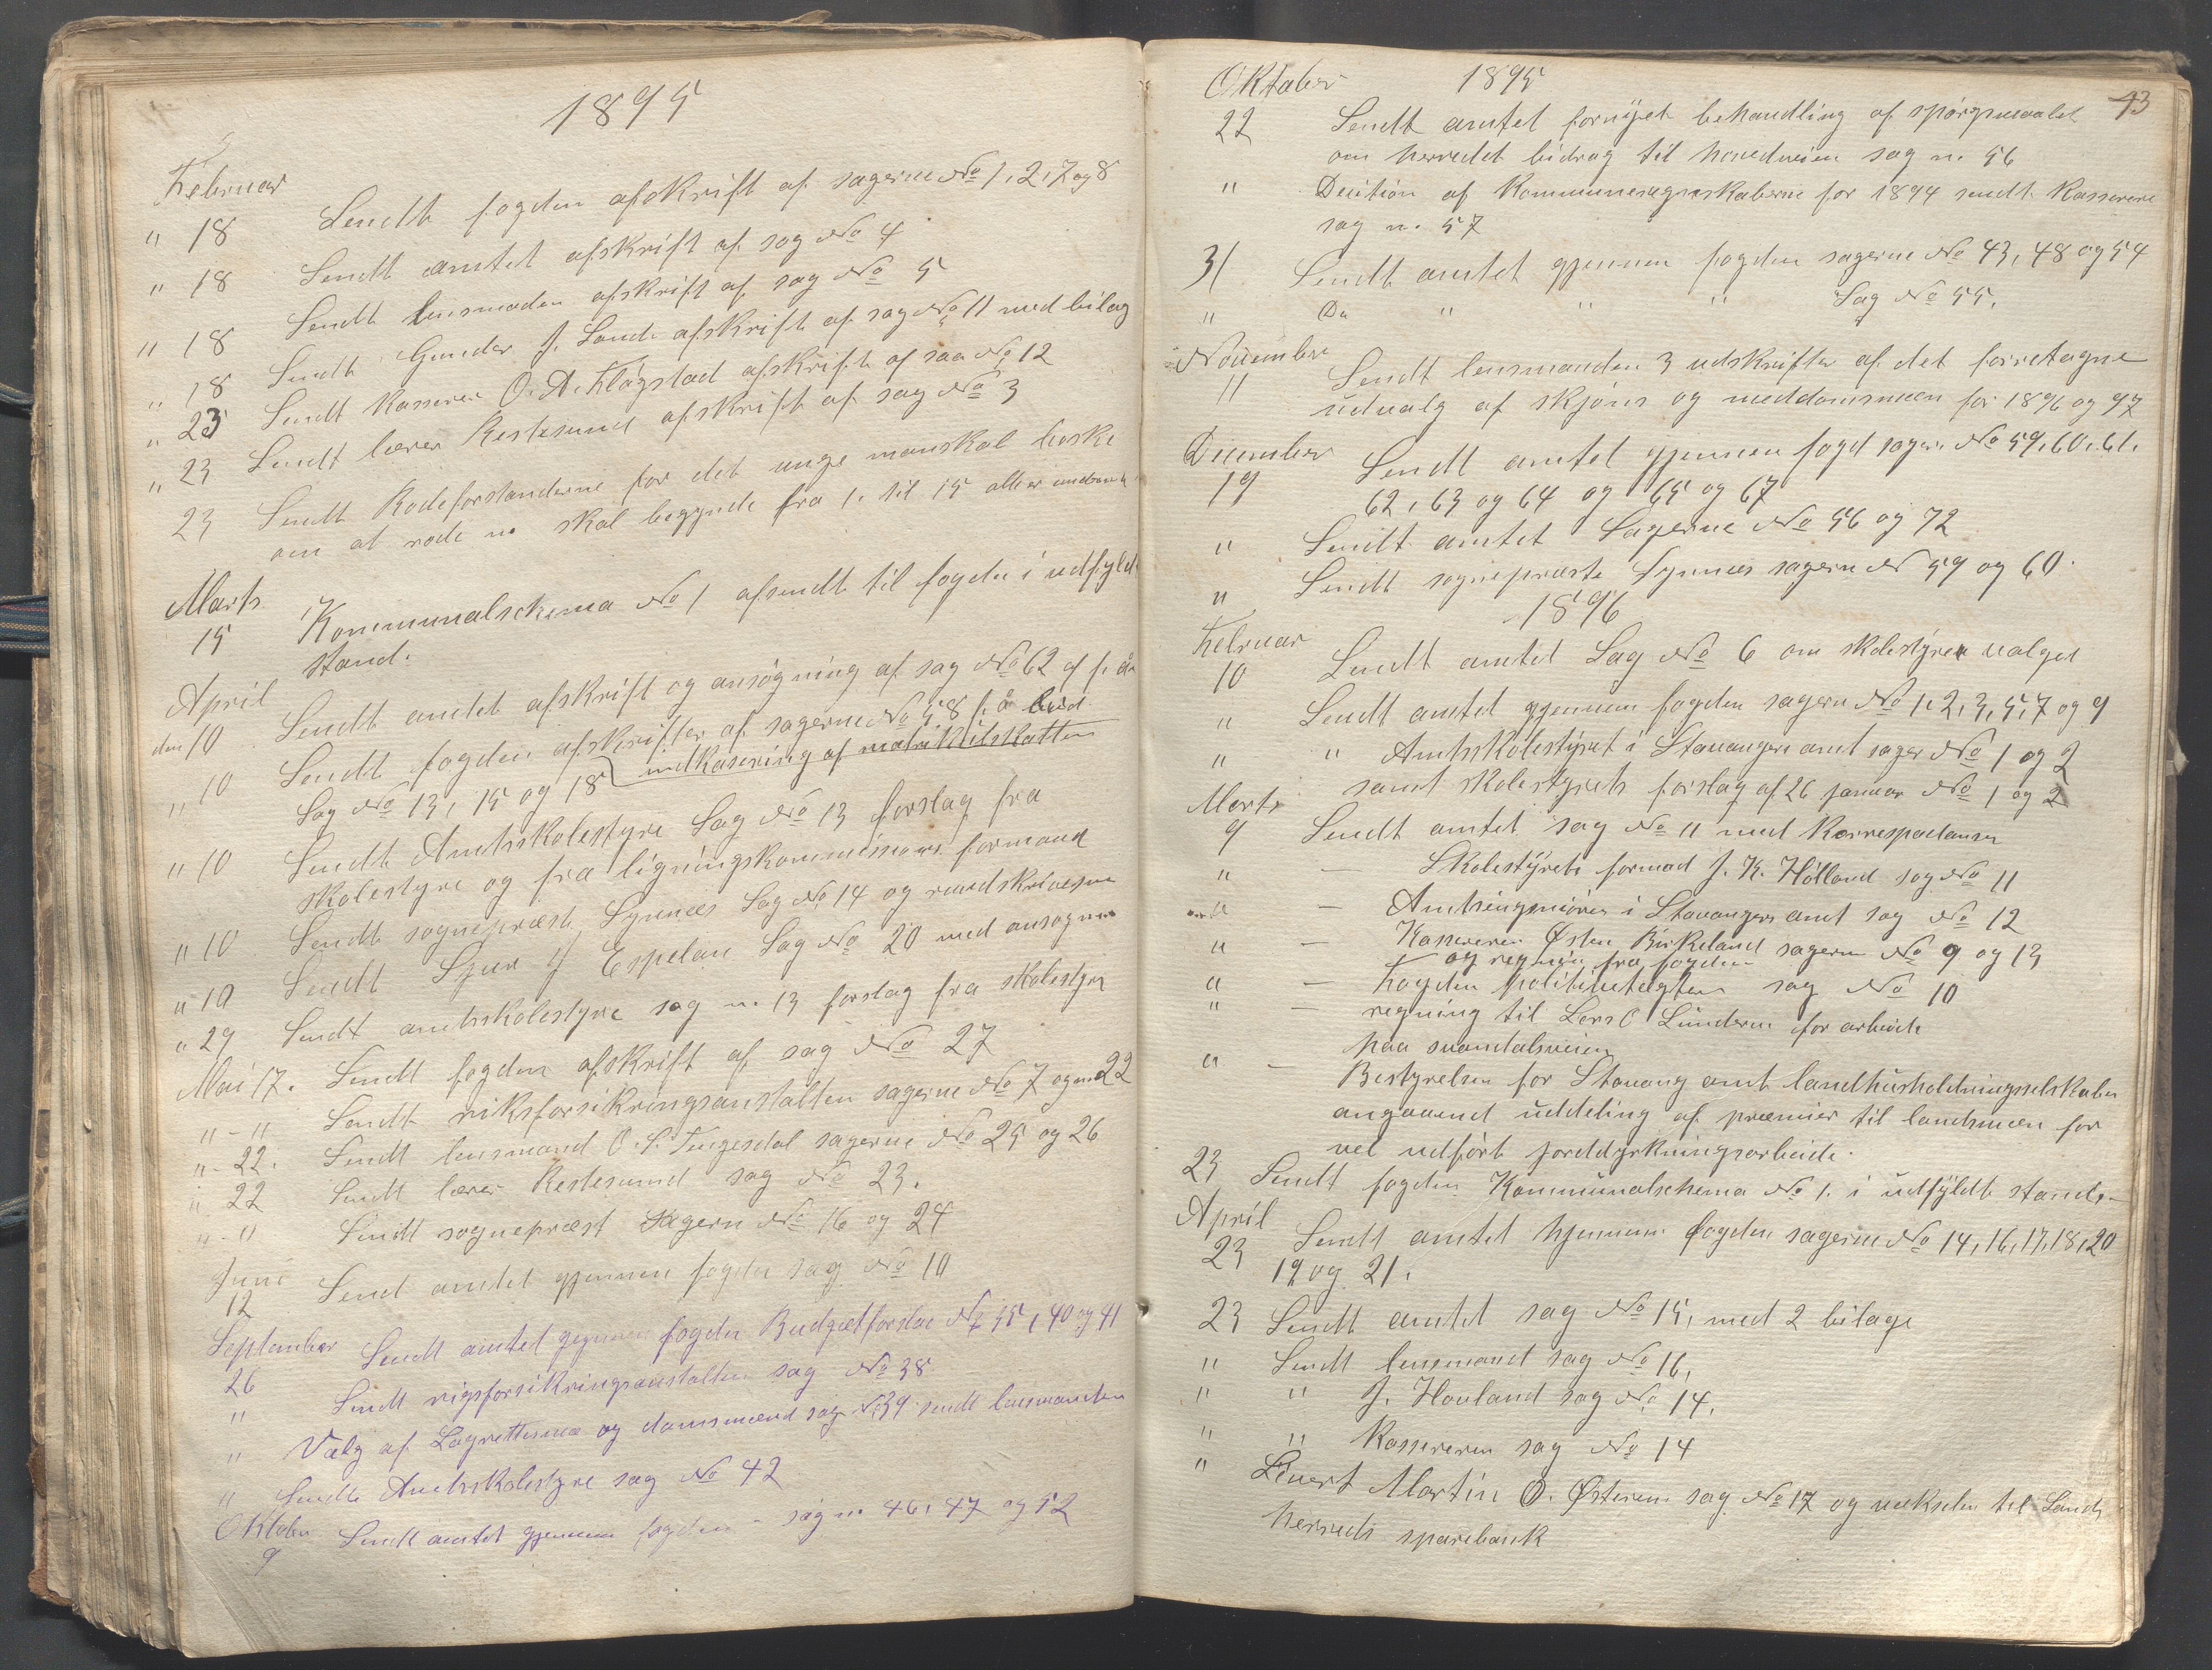 1895
Februar
" 18 Sendt fogden afskrift af sagerne No 1, 2, 7 og 8
" 18 Sendt amtet afskrift af sag No 4
" 18 Sendt lensmaden afskrift af sag No 5
" 18 Sendt Gunder J. Sande afskrift af sag No 11 med bilag
" 23 Sendt Kasserer O. A. Fløgstad afskrift af saa No 12
" 23 Sendt lærer Kestesund afskrift af sag No 3
23 Sendt Rodeforstanderne for det unge manskal
om at rode no skal begynde fra 1. til 15
Marts
15 Kommunalschema No 1 afsendt til fogden i udfyldt
stand.
April
den 10 Sendt amtet afskrift og ansøgning af sag No 62 af f. år
" 10 Sendt fogden afskrifter af sagerne No 58 f. å
Sag No 13, 15 og 18 indkasering af matrikilskatten
" 10 Sendt Amtsskolestyre Sag No 13 forslag fra
skolestyre og fra ligningskommissions formand
" 10 Sendt sogneprest Synnes Sag No 14 og
" 10 Sendt Sjur J Espelan Sag No 20 med
" 29 Sendt amtsskolestyre sag n. 13 forslag fra skolestyre
Mai 17. Sendt fogden afskrift af sag No 27
" - " Sendt riksforsikringsanstalten sagerne No 7 og 22
" - 22. Sendt lensmand O. S. Tengesdal sagerne No 25 og 26
" 22 Sendt lærer Kestesund sag No 23.
" - " Sendt sogneprest Sagern No 16 og 24
Juni
12 Send amtet gjennen fogden sag No 10
September Sendt amtet gjennem fogden Budgætforslae No 35, 40 og 41
26
" Sendt rigsforsikringsanstalten sag No 38
" Valg af Lagrettesmæ og domsmænd sag No 39 sendt lensmanden
" Sendt Amtsskolestyre sag No 42
Oktober
9 Sendt amtet gjennem fogden - sag n. 46, 47 og 52
43
Oktober 1895
22 Sendt amtet fornyet behandling af spørgsmaalet
om herredet bidrag til hovedveien sag n. 56
" Decition af Kommuneregnskaberne for 1894 sendt Kasserere
sag n. 57
31 Sendt amtet gjennem fogden sagerne No 43, 48 og 54
" Do " " " Sag No 55.
November
11 Sendt lensmanden 3 udskrifter af det forretagne
udvalg af skjøns og meddomsmæn for 1896 og 97
December
19 Sendt amtet gjennem fogd sager No 59, 60, 61,
62, 63 og 64 og 65 og 67
" Sendt amtet Sagerne No 56 og 72
" Sendt sogneprest Synnes sagern N 59 og 60.
1896
Februar
10 Sendt amtet Sag No 6 om skolestyre valget
" Sendt amtet gjennem fogden sagern No 1, 2, 3, 5, 7 og 9
" " Amtsskolestyret i Stavangers amt sager No 1 og 2
samt skolestyrets forslag af 26 januar No 1 og 2
Marts
9 Sendt amtet sag No 11 med Korrespodansen
" — Skolestyrets formad J. K. Hølland sag No 11
" — Amtsingeniøren i Stavangers amt sag No 12
" — Kassereren Østen Birkeland sagern No 9 og 13
og regning fra fogden
" — Fogden politivetægten sag No 10
" — regning til Lars O Lunderne for arbeide
paa svandalsveien
" - Bestyrelsen for Stavang amt landhusholdningsselskaber
angaaend uddeling af præmier til landsmæn for
vel udført jorddyrkningsarbeide.
23 Sendt fogden Kommunalschema No 1. i udfyldt stand.-
April
23 Sendt amtet hjennem fogden sagerne No 14, 16, 17, 18, 20
19 og 21.
23 Sendt amtet sag No 15, med 2 bilage
" Sendt lensmand sag No 16,
" " J. Hovland sag No 14,
" " Kassereren sag No 14
" Sivert Martin O. Østerem sag No 17 og vekselen til Sands
herreds sparebank